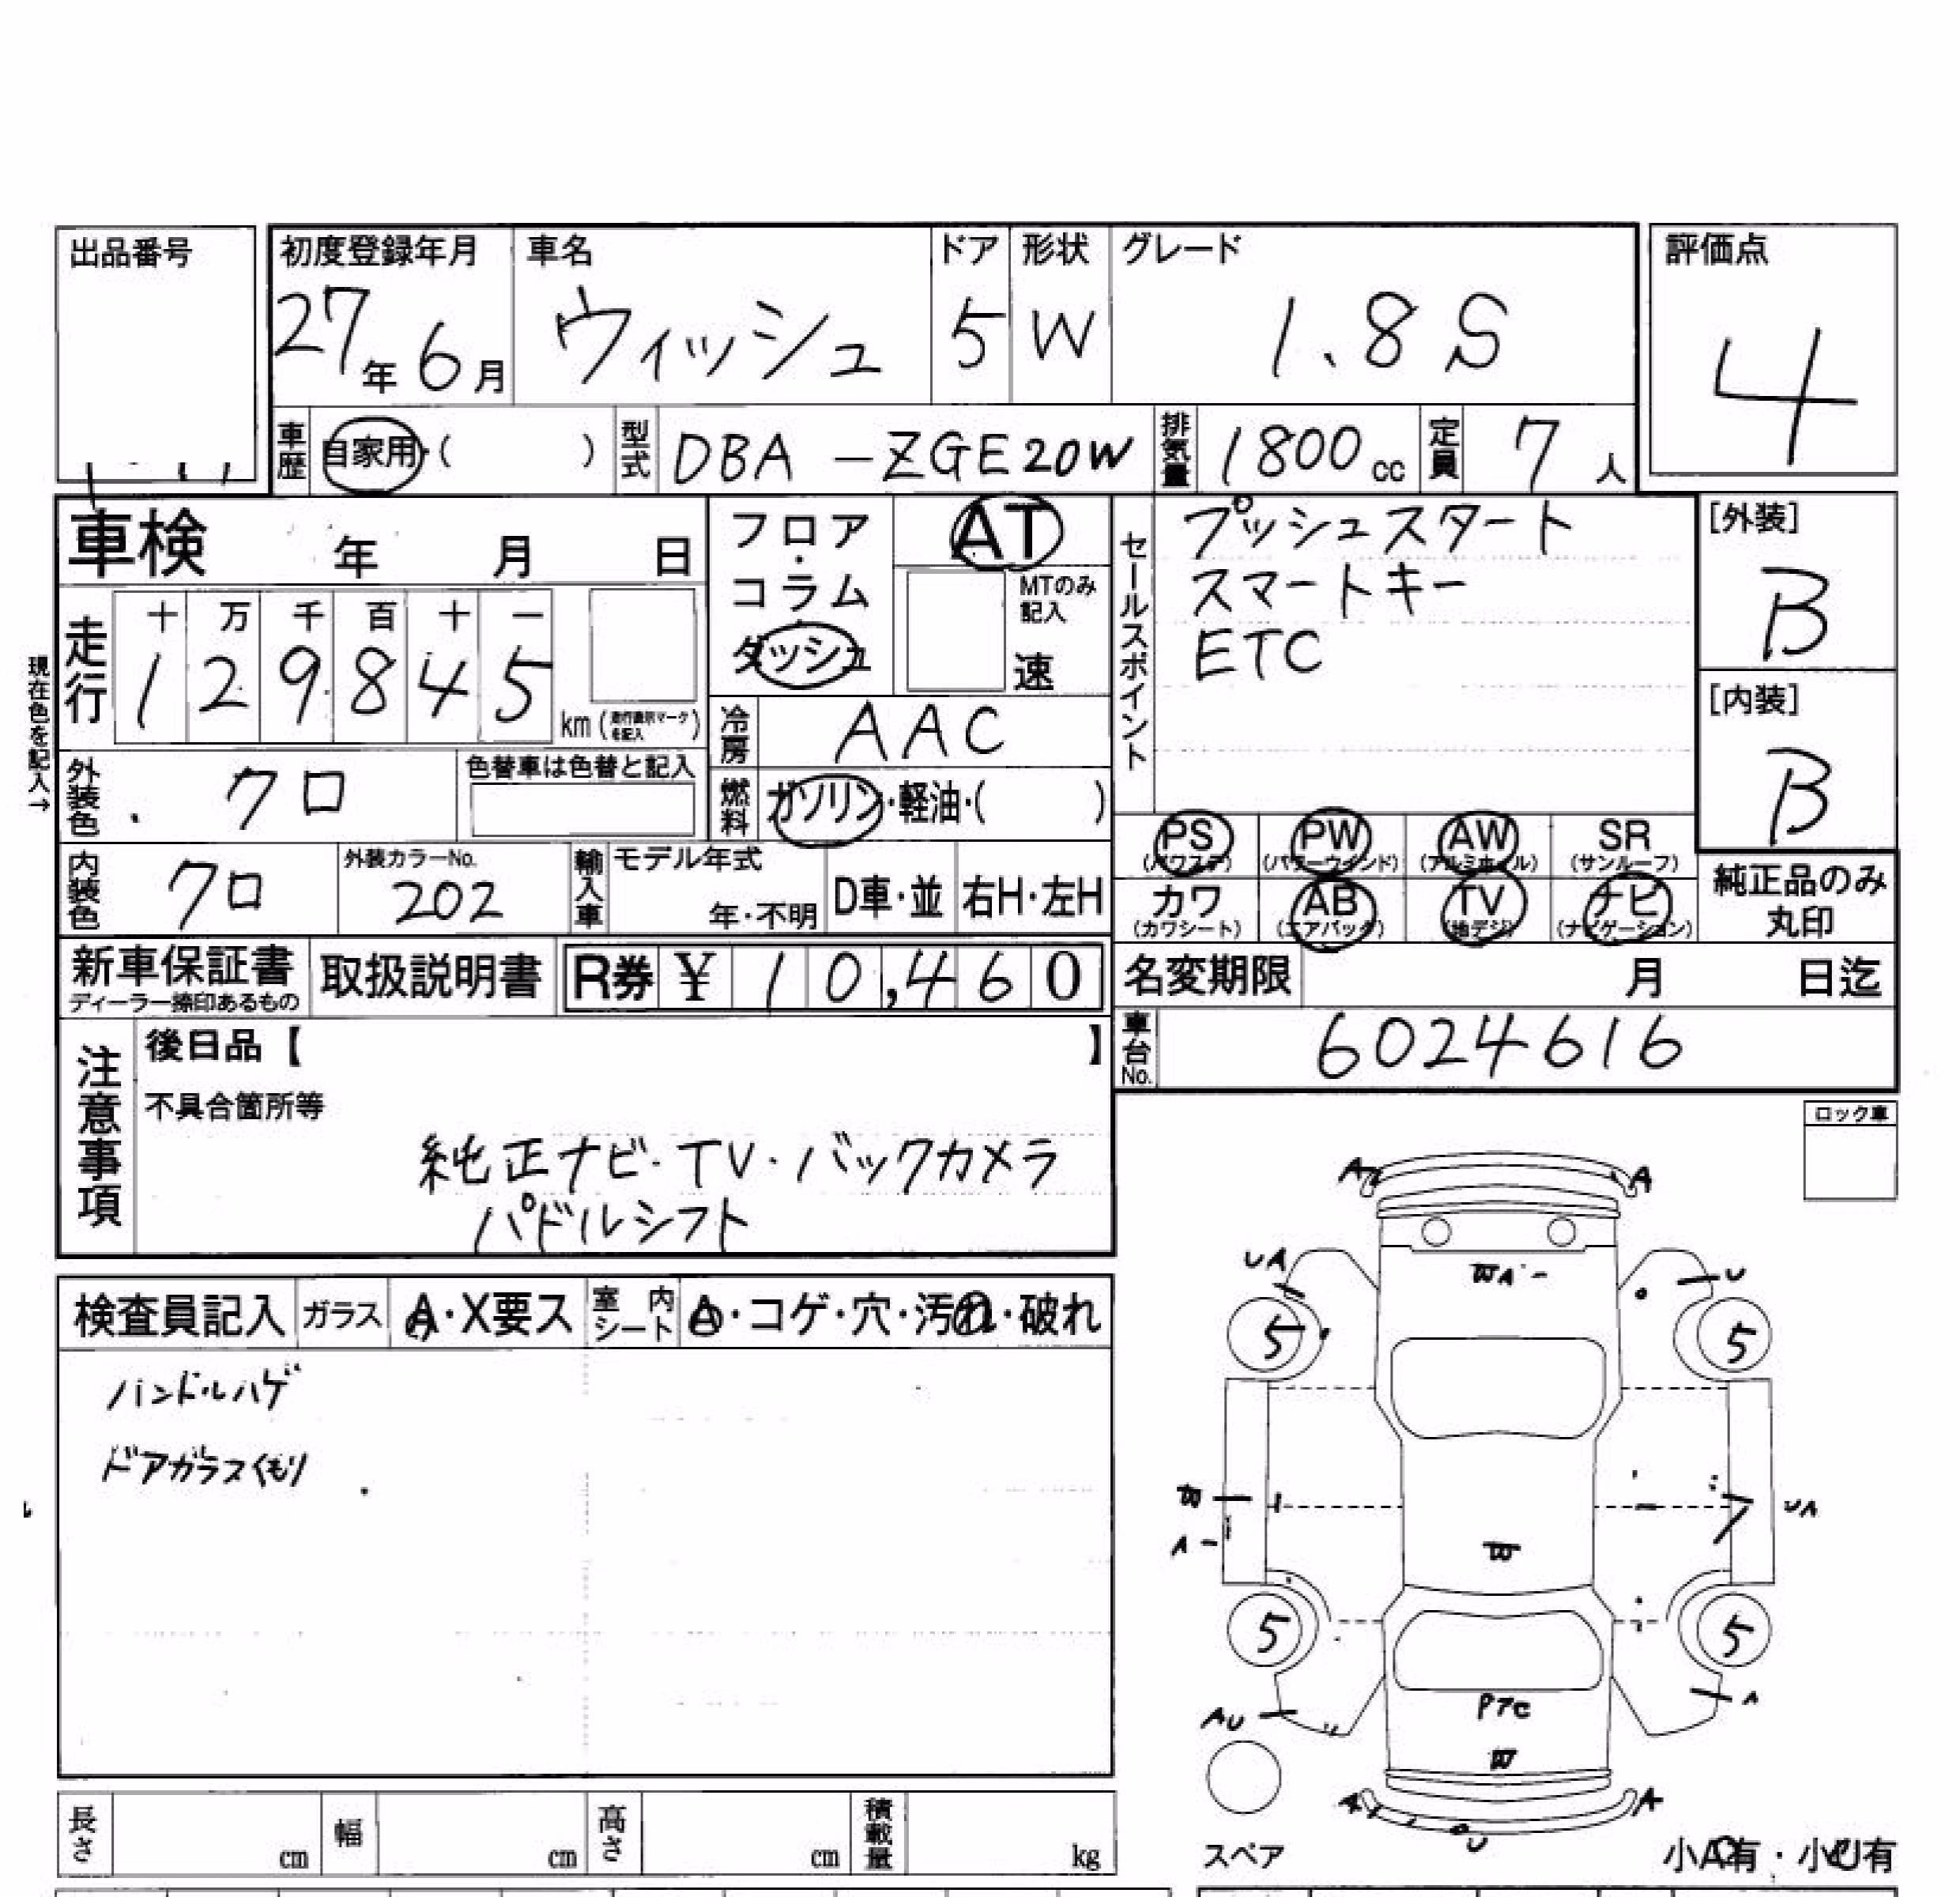 出品番号
初度登録年月
27年6月
車名
ウィッシュ
ドア
5
形状
W
グレード
1.8 S
評価点
4
車歴
自家用・( )
型式
DBA -ZGE20W
排気量
1800cc
定員
7人
車検 年 月 日
現在色を記入→
走行
十 万 千 百 十 一
1 2 9 8 4 5
km (走行表示マークを記入)
フロア・コラム・ダッシュ
AT
MTのみ記入
速
冷房
AAC
燃料
ガソリン・軽油・( )
セールスポイント
プッシュスタート
スマートキー
ETC
[外装]
B
[内装]
B
外装色
クロ
色替車は色替と記入
内装色
クロ
外装カラーNo.
202
輸入車
モデル年式
年・不明
D車・並
右H・左H
PS
(パワステ)
PW
(パワーウインド)
AW
(アルミホイル)
SR
(サンルーフ)
カワ
(カワシート)
AB
(エアバック)
TV
(地デジ)
ナビ
(ナビゲーション)
純正品のみ
丸印
新車保証書
ディーラー捺印あるもの
取扱説明書
R券 ¥ 10,460
名変期限 月 日迄
車台No.
6024616
注意事項
後日品【 】
不具合箇所等
純正ナビ・TV・バックカメラ
パドルシフト
ロック車
検査員記入
ガラス
A・X要ス
室内シート
A・コゲ・穴・汚れ・破れ
ハンドルハゲ
ドアガラスくもり
A A
UA WA U
5 5
W UA
A W
5 5
AU P7C A
W
A U A
スペア
小A有・小U有
長さ cm
幅 cm
高さ cm
積載量 kg